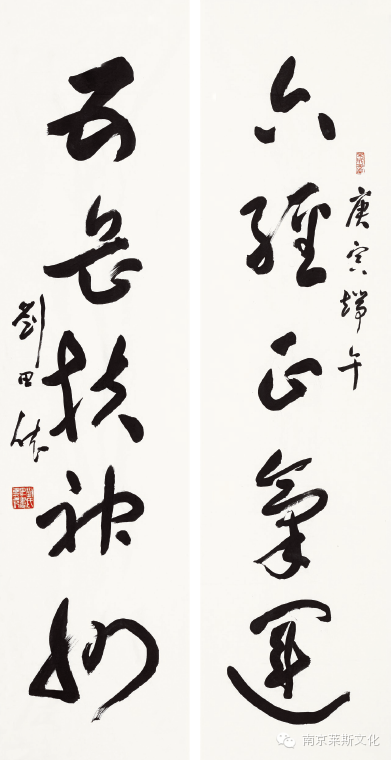 庚寅端午
六經正氣運
五岳扶神州
劉田依
南京莱斯文化